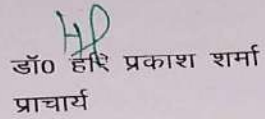 डॉ0 हरि प्रकाश शर्मा
प्राचार्य